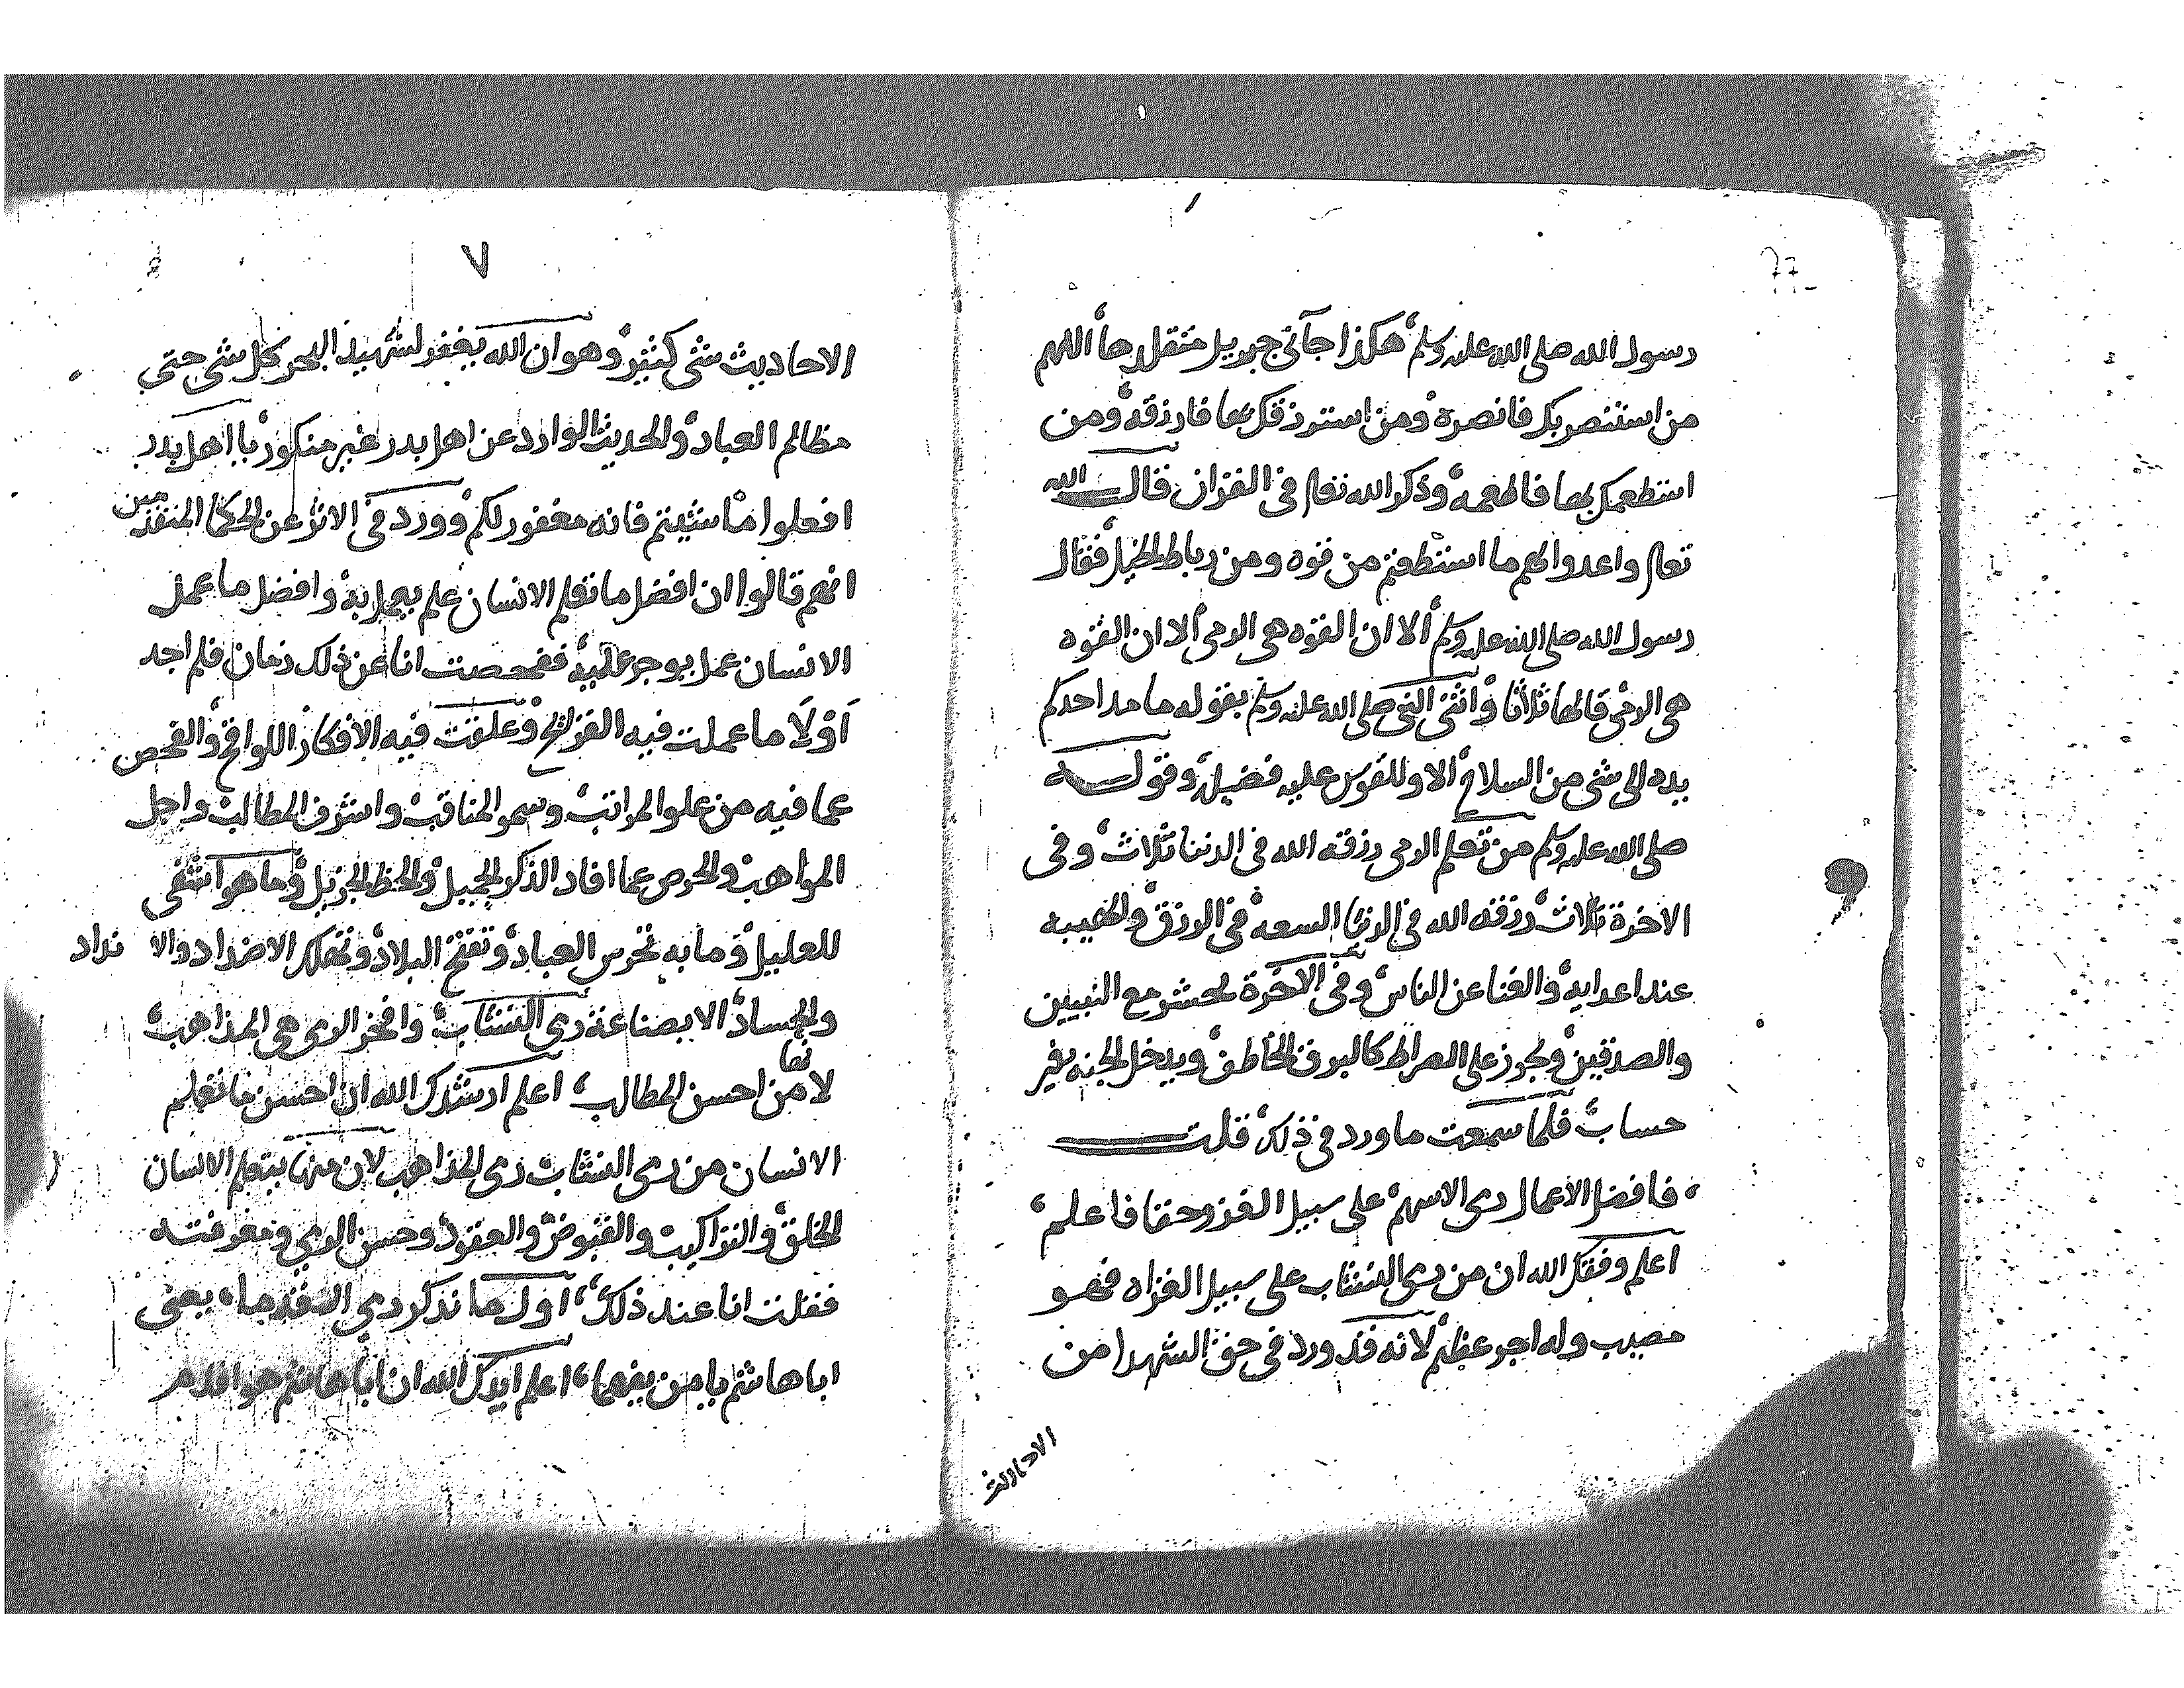 رسول الله صلى الله عليه وسلم هكذا جآنى جبريل متقلدها اللهم
من استنصر بك فانصره ومن استرزقك بها فارزقه ومن
استطعمك بها فاطعمه وذكر الله تعالى فى القران قال الله
تعالى واعدوا لهم ما استطعتم من قوه ومن رباط الخيل فقال
رسول الله صلى الله عليه وسلم ألا ان القوه هى الرمى ألا ان القوه
هى الرمى قالها ثلاثا واثنى النبى صلى الله عليه وسلم بقوله ما مد احدكم
يده الى شى من السلاح الا وللقوس عليه فضيله وقوله
صلى الله عليه وسلم من تعلم الرمى رزقه الله فى الدنيا ثلاث وفى
الاخرة ثلاث رزقه الله فى الدنيا السعه فى الرزق والهيبه
عند اعدايه والغنا عن الناس وفى الاخرة يحشر مع النبيين
والصدقين ويجوز على الصراط كالبرق الخاطف ويدخل الجنه بغير
حساب فلما سمعت ما ورد فى ذلك قلت
فافضل الاعمال رمى الاسهم على سبيل الغزو حقا فاعلم
اعلم وفقك الله ان من رمى النشاب على سبيل الغزاه فهو
مصيب وله اجر عظيم لانه قد ورد فى حق الشهدا من
الاحاديث
٧
الاحاديث شى كثير وهو ان الله يغفر لشهيد البحر كل شى حتى
مظالم العباد والحديث الوارد عن اهل بدر غير منكور يا اهل بدر
افعلوا ما شيتم فانه مغفور لكم وورد فى الاثر عن الحكما المتقدمين
انهم قالوا ان افضل ما تعلم الانسان علم يعمل به وافضل ما عمل
الانسان عمل يوجر عليه ففحصت انا عن ذلك زمان فلم اجد
اولا ما عملت فيه القرائح وعلقت فيه الافكار اللواقح والفحص
عما فيه من علو المراتب وسمو المناقب واشرف المطالب واجل
المواهب والحرص عما افاد الذكر الجميل والحظ الجزيل وما هو اشفى
للعليل وما به تحرس العباد وتفتح البلاد وتهلك الاضداد والانداد
والحساد الا بصناعة رمى النشاب وافخر الرمى هى المذاهب
لانها من احسن المطالب اعلم ارشدك الله ان احسن ما تعلم
الانسان من رمى النشاب رمى المذاهب لان منها يتعلم الانسان
الخلق والتراكيب والقبوض والعقود وحسن الرمى ومعرفته
فقلت انا عند ذلك اول ما نذكر رمى القدماء يعنى
ابا هاشم يا من يفهما اعلم ايدك الله ان ابا هاشم هو اقدم